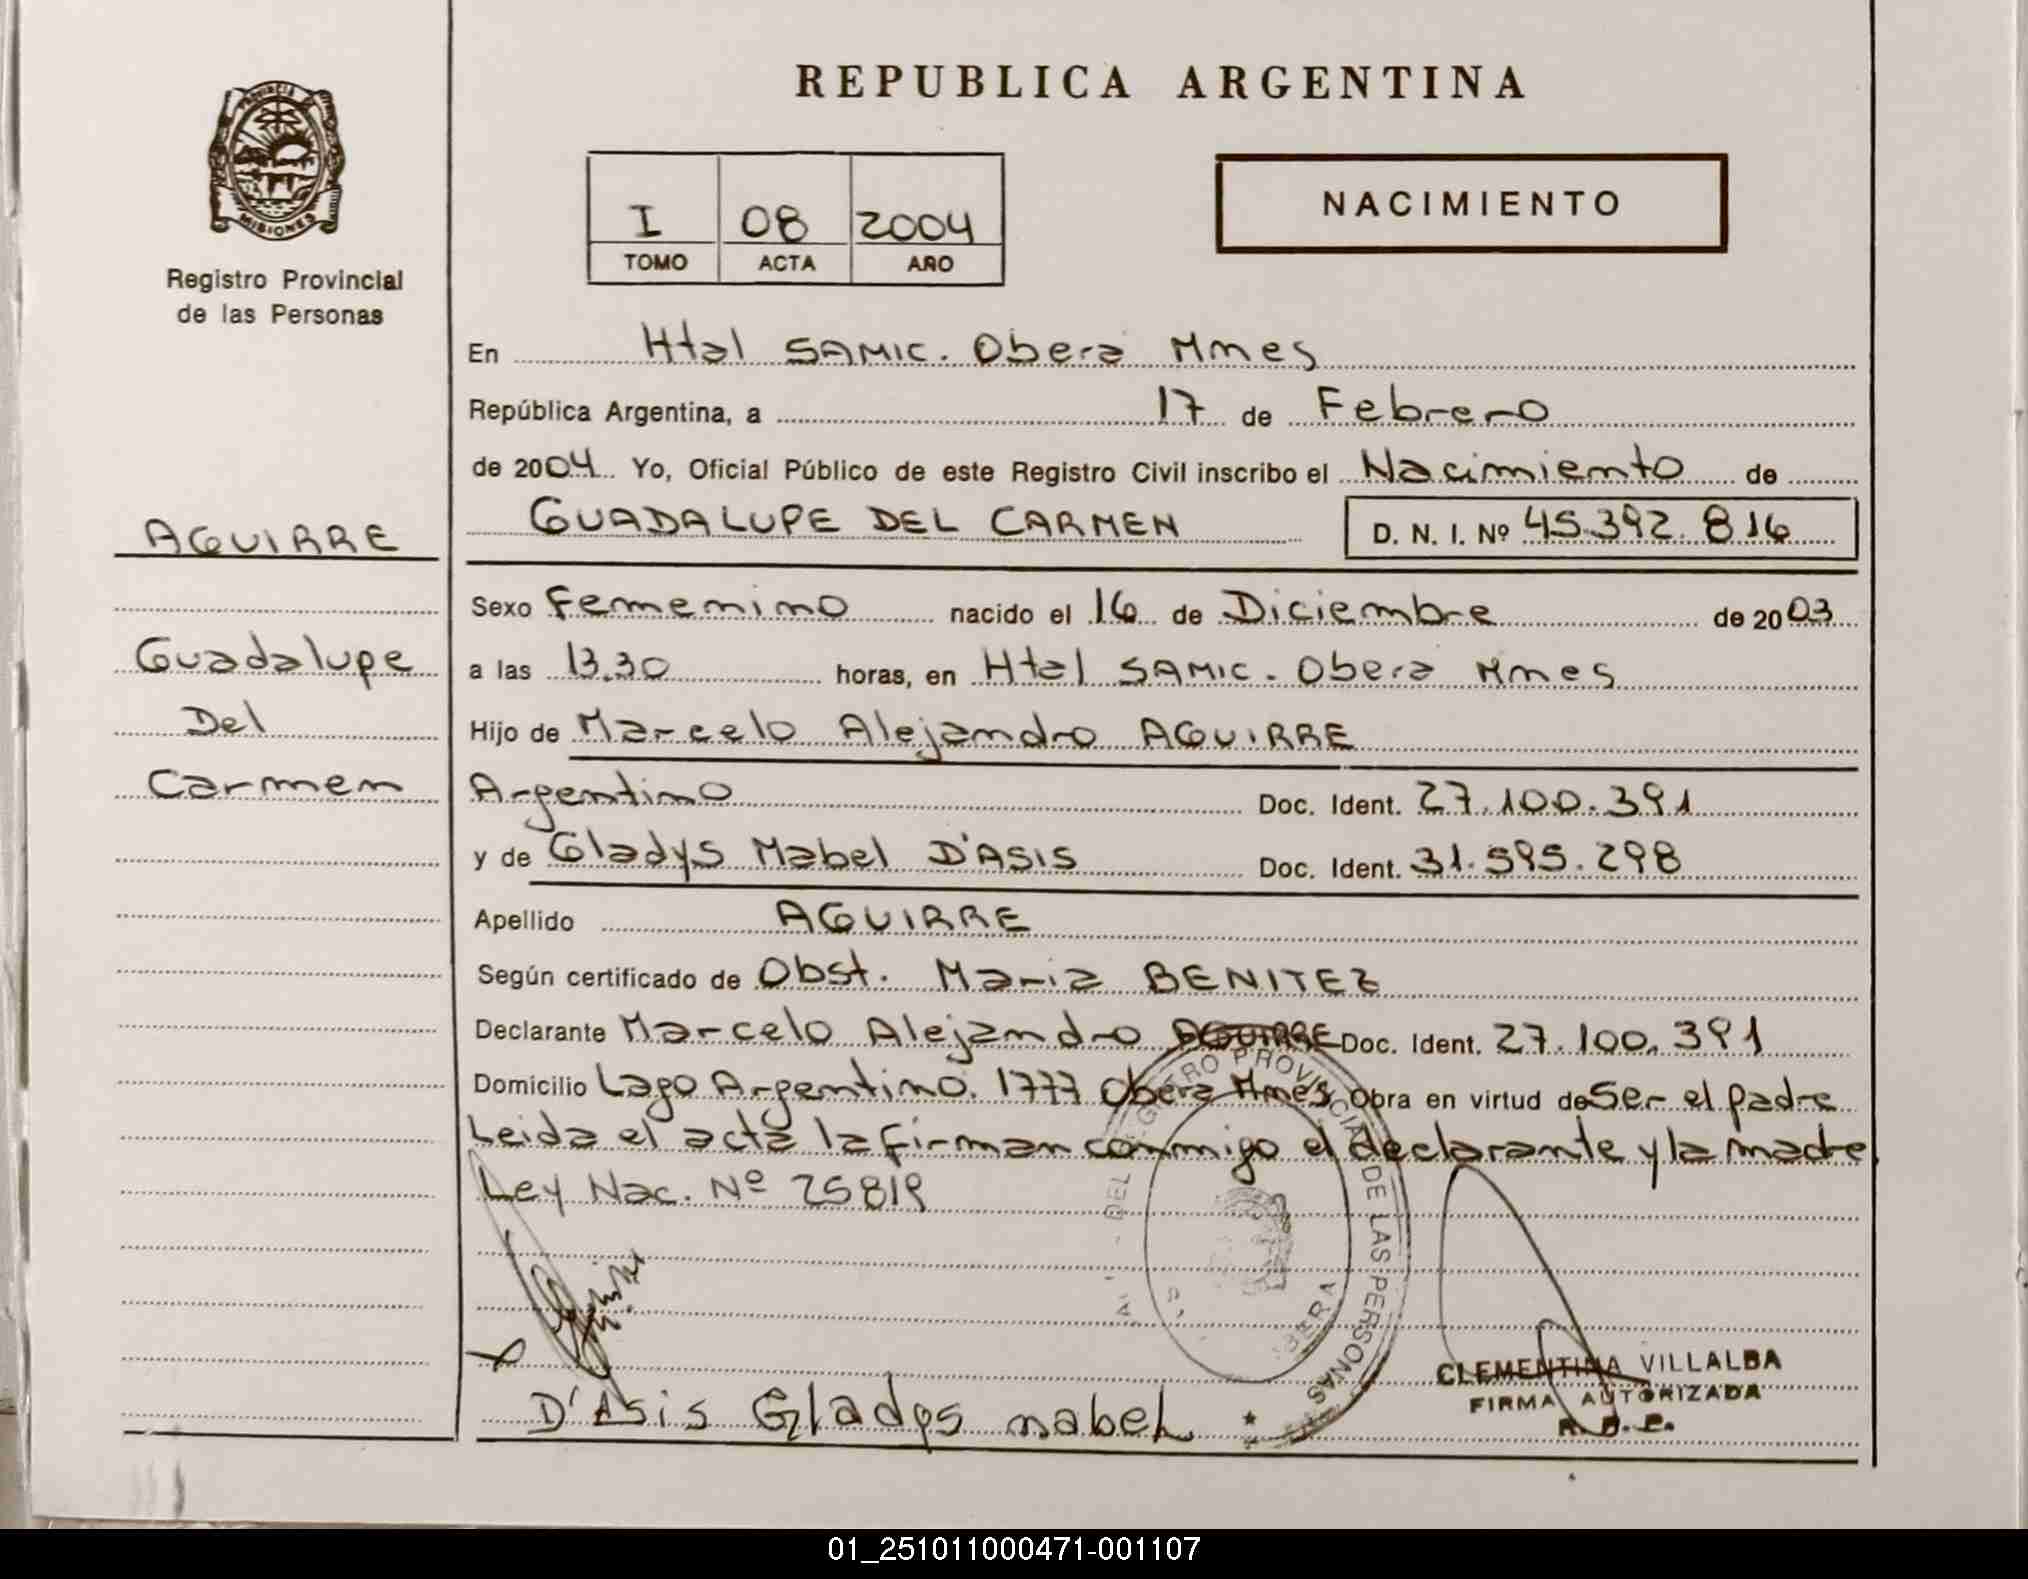 REPUBLICA ARGENTINA
PROVINCIA DE
MISIONES
Registro Provincial
de las Personas
I 08 2004
TOMO ACTA AÑO
NACIMIENTO
En Htal SAMIC. Obera Mnes
República Argentina, a 17 de Febrero
de 2004 Yo, Oficial Público de este Registro Civil inscribo el Nacimiento de
GUADALUPE DEL CARMEN D. N. I. Nº 45.392.816
AGUIRRE
Guadalupe
Del
Carmen
Sexo Femenino nacido el 16 de Diciembre de 2003
a las 13.30 horas, en Htal SAMIC. Obera Mnes
Hijo de Marcelo Alejandro AGUIRRE
Argentino Doc. Ident. 27.100.391
y de Gladys Mabel D'ASIS Doc. Ident. 31.595.298
Apellido AGUIRRE
Según certificado de Obst. Maria BENITEZ
Declarante Marcelo Alejandro AGUIRRE Doc. Ident. 27.100.391
Domicilio Lago Argentino. 1777 Obera Mnes Obra en virtud de Ser el padre
Leida el acta la firman conmigo el declarante y la madre
Ley Nac. Nº 25819
PROVINCIAL DE LAS PERSONAS
CLEMENTINA VILLALBA
FIRMA AUTORIZADA
D'Asis Gladys mabel
01_251011000471-001107